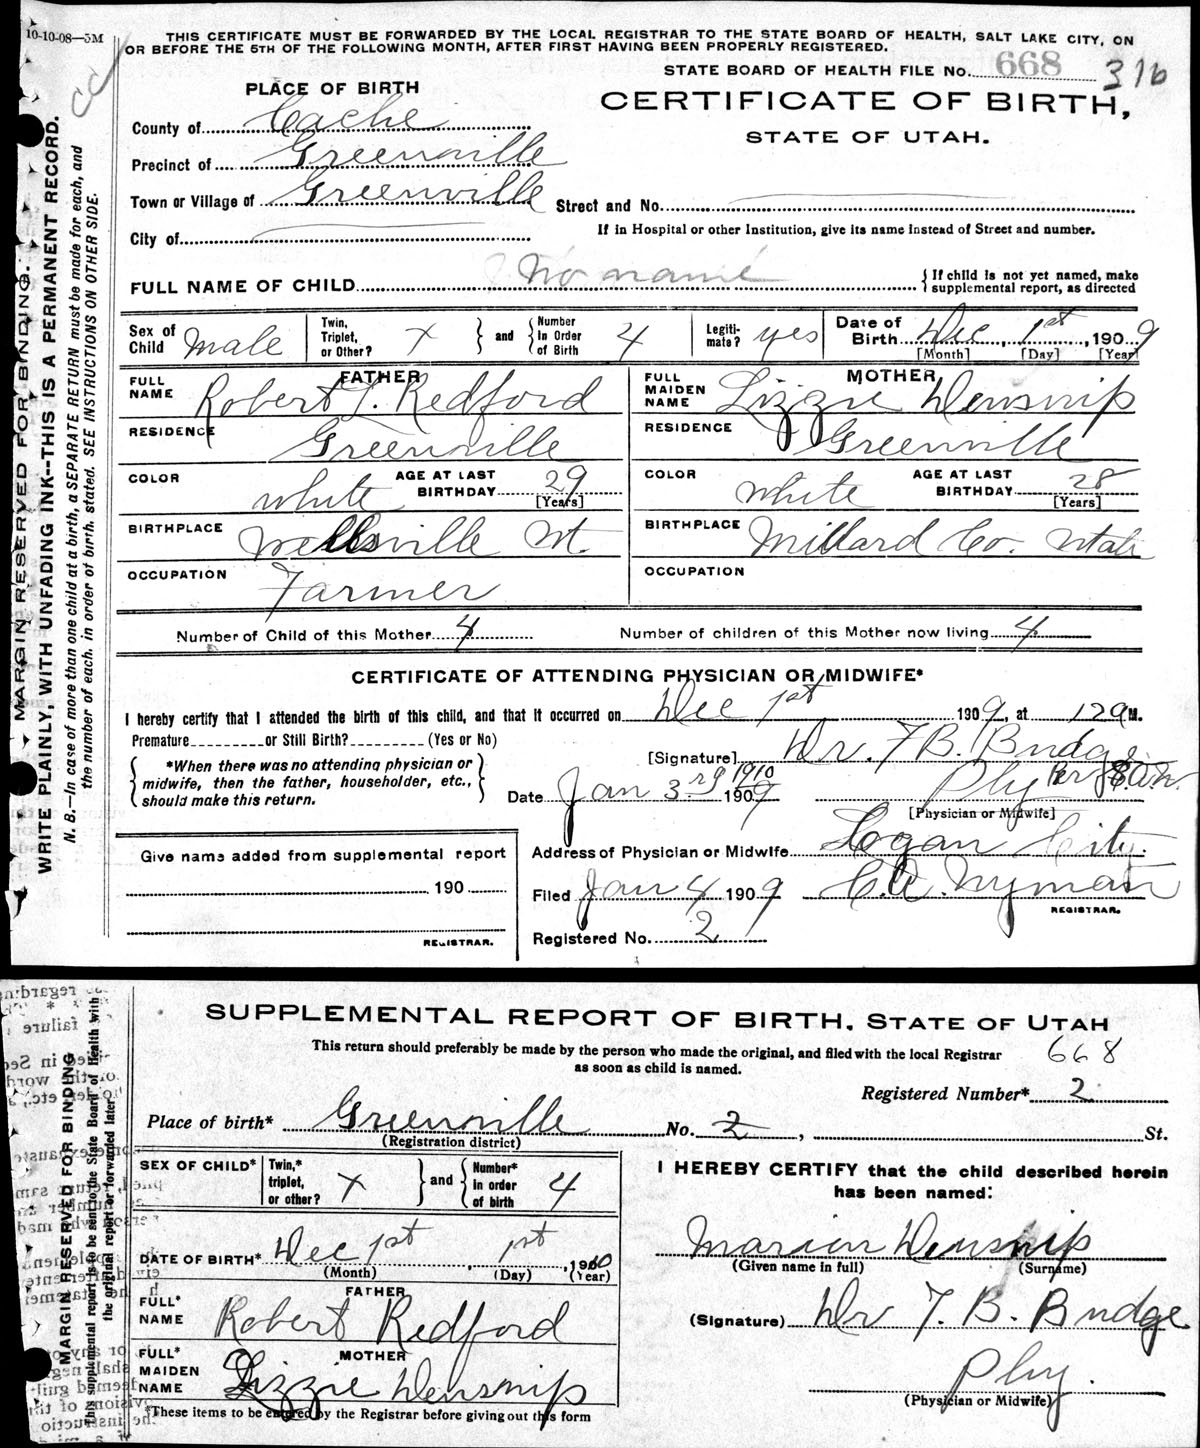 10-10-08—3M
THIS CERTIFICATE MUST BE FORWARDED BY THE LOCAL REGISTRAR TO THE STATE BOARD OF HEALTH, SALT LAKE CITY, ON
OR BEFORE THE 5TH OF THE FOLLOWING MONTH, AFTER FIRST HAVING BEEN PROPERLY REGISTERED.
STATE BOARD OF HEALTH FILE No. 668 316
PLACE OF BIRTH
CERTIFICATE OF BIRTH,
STATE OF UTAH.
County of Cache
Precinct of Greenville
Town or Village of Greenville
Street and No.
City of
If in Hospital or other Institution, give its name instead of Street and number.
FULL NAME OF CHILD No name
{ If child is not yet named, make
supplemental report, as directed
Sex of Child Male Twin, Triplet, or Other? X } and { Number In Order of Birth 4 Legiti-mate? yes Date of Birth Dec 1st, 1909
[Month] [Day] [Year]
FATHER
FULL NAME Robert T. Redford
RESIDENCE Greenville
COLOR white AGE AT LAST BIRTHDAY 29 [Years]
BIRTHPLACE Wellsville Ut.
OCCUPATION Farmer
MOTHER
FULL MAIDEN NAME Lizzie Densnip
RESIDENCE Greenville
COLOR white AGE AT LAST BIRTHDAY 28 [Years]
BIRTHPLACE Millard Co. Utah
OCCUPATION
Number of Child of this Mother 4 Number of children of this Mother now living 4
CERTIFICATE OF ATTENDING PHYSICIAN OR MIDWIFE*
I hereby certify that I attended the birth of this child, and that it occurred on Dec 1st 1909, at 12 a M.
Premature or Still Birth? (Yes or No)
[Signature] Dr. T. B. Budge
Phy Per
*When there was no attending physician or
midwife, then the father, householder, etc.,
should make this return.
Date Jan 3rd 1909 1910
[Physician or Midwife]
Give name added from supplemental report
190
REGISTRAR.
Address of Physician or Midwife Logan City.
Filed Jan 4 1909 C.A. Nyman
REGISTRAR.
Registered No. 2
MARGIN RESERVED FOR BINDING.
WRITE PLAINLY, WITH UNFADING INK--THIS IS A PERMANENT RECORD.
N. B.—In case of more than one child at a birth, a SEPARATE RETURN must be made for each, and
the number of each, in order of birth, stated. SEE INSTRUCTIONS ON OTHER SIDE.
SUPPLEMENTAL REPORT OF BIRTH, STATE OF UTAH
This return should preferably be made by the person who made the original, and filed with the local Registrar
as soon as child is named.
668
Registered Number* 2
Place of birth* Greenville No. 2, St.
(Registration district)
SEX OF CHILD* Twin,* triplet, or other? X } and { Number* In order of birth 4
DATE OF BIRTH* Dec 1st, 1st, 1910
(Month) (Day) (Year)
FATHER
FULL* NAME Robert Redford
MOTHER
FULL* MAIDEN NAME Lizzie Densnip
*These items to be entered by the Registrar before giving out this form
I HEREBY CERTIFY that the child described herein
has been named:
Marion Densnip
(Given name in full) (Surname)
(Signature) Dr T. B. Budge
Phy.
(Physician or Midwife)
MARGIN RESERVED FOR BINDING
This supplemental report is to be sent to the State Board of Health with
the original report or forwarded later.